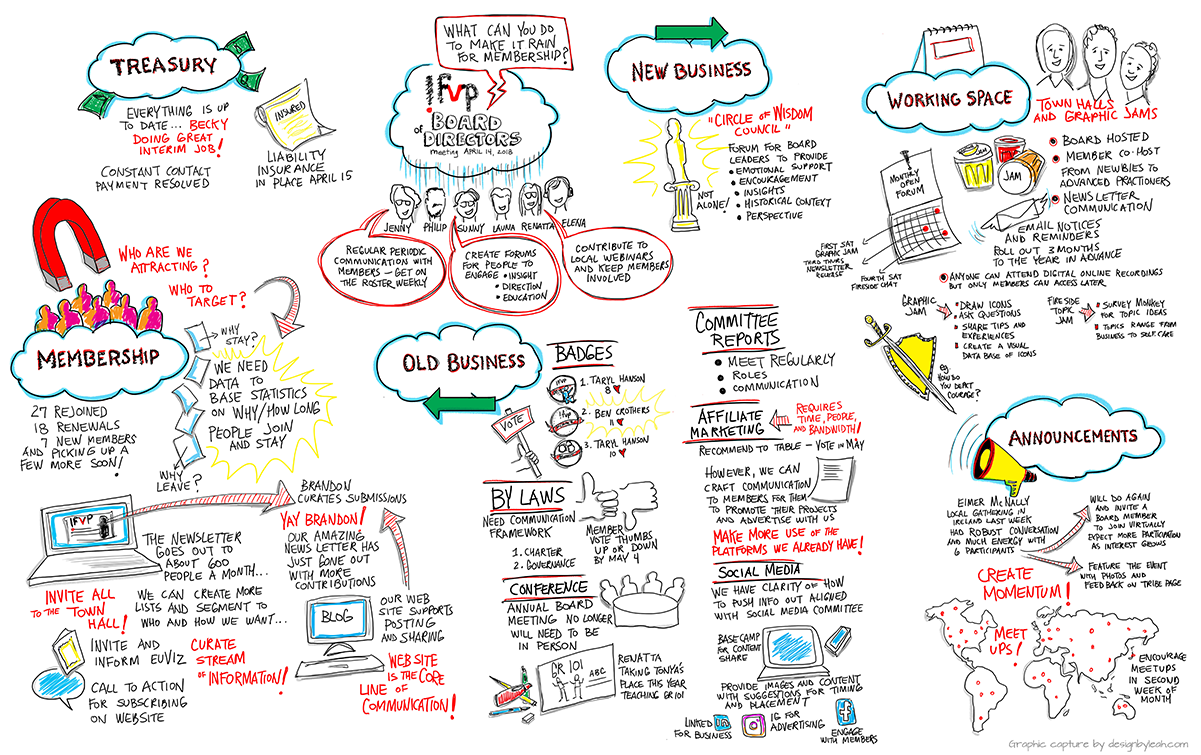 TREASURY
EVERYTHING IS UP
TO DATE... BECKY
DOING GREAT
INTERIM JOB!
CONSTANT CONTACT
PAYMENT RESOLVED
INSURED
LIABILITY
INSURANCE
IN PLACE APRIL 15
WHAT CAN YOU DO
TO MAKE IT RAIN
FOR MEMBERSHIP?
IFVP
BOARD
of DIRECTORS
meeting APRIL 14, 2018
JENNY PHILIP SUNNY LAUNA RENATTA ELENA
REGULAR PERIODIC
COMMUNICATION WITH
MEMBERS - GET ON
THE ROSTER WEEKLY
CREATE FORUMS
FOR PEOPLE TO
ENGAGE • INSIGHT
• DIRECTION
• EDUCATION
CONTRIBUTE TO
LOCAL WEBINARS
AND KEEP MEMBERS
INVOLVED
NEW BUSINESS
"CIRCLE OF WISDOM
COUNCIL"
FORUM FOR BOARD
LEADERS TO PROVIDE
• EMOTIONAL SUPPORT
• ENCOURAGEMENT
• INSIGHTS
• HISTORICAL CONTEXT
• PERSPECTIVE
NOT
ALONE!
WORKING SPACE
TOWN HALLS
AND GRAPHIC JAMS
MONTHLY
OPEN
FORUM
JAM
JAM
BOARD HOSTED
MEMBER CO-HOST
FROM NEWBIES TO
ADVANCED PRACTIONERS
NEWSLETTER
COMMUNICATION
EMAIL NOTICES
AND REMINDERS
ROLL OUT 3 MONTHS
TO THE YEAR IN ADVANCE
FIRST SAT
GRAPHIC JAM
THIRD THURS
NEWSLETTER
RELEASE
FOURTH SAT
FIRESIDE CHAT
ANYONE CAN ATTEND DIGITAL ONLINE RECORDINGS
BUT ONLY MEMBERS CAN ACCESS LATER
GRAPHIC
JAM
DRAW ICONS
ASK QUESTIONS
SHARE TIPS AND
EXPERIENCES
CREATE A VISUAL
DATA BASE OF ICONS
FIRESIDE
TOPIC
JAM
SURVEY MONKEY
FOR TOPIC IDEAS
TOPICS RANGE FROM
BUSINESS TO SELF CARE
eg.
HOW DO
YOU DEPICT
COURAGE?
WHO ARE WE
ATTRACTING?
WHO TO
TARGET?
MEMBERSHIP
27 REJOINED
18 RENEWALS
7 NEW MEMBERS
AND PICKING UP A
FEW MORE SOON!
WHY
STAY?
WE NEED
DATA TO
BASE STATISTICS
ON WHY/HOW LONG
PEOPLE JOIN
AND STAY
WHY
LEAVE?
IFVP
BRANDON
CURATES SUBMISSIONS
YAY BRANDON!
OUR AMAZING
NEWS LETTER HAS
JUST GONE OUT
WITH MORE
CONTRIBUTIONS
THE NEWSLETTER
GOES OUT TO
ABOUT 600
PEOPLE A MONTH...
INVITE ALL
TO THE TOWN
HALL!
WE CAN CREATE MORE
LISTS AND SEGMENT TO
WHO AND HOW WE WANT...
INVITE AND
INFORM EUVIZ
CURATE
STREAM
OF INFORMATION!
CALL TO ACTION
FOR SUBSCRIBING
ON WEBSITE
BLOG
OUR WEB
SITE SUPPORTS
POSTING
AND SHARING
WEB SITE
IS THE CORE
LINE OF
COMMUNICATION!
OLD BUSINESS
VOTE
BADGES
IFVP
1. TARYL HANSON
8
IFVP
2. BEN CROTHERS
11
3. TARYL HANSON
10
BY LAWS
NEED COMMUNICATION
FRAMEWORK
1. CHARTER
2. GOVERNANCE
MEMBER
VOTE THUMBS
UP OR DOWN
BY MAY 4
CONFERENCE
ANNUAL BOARD
MEETING NO LONGER
WILL NEED TO BE
IN PERSON
GR 101
ABC
RENATTA
TAKING TONYA'S
PLACE THIS YEAR
TEACHING GR101
COMMITTEE
REPORTS
• MEET REGULARLY
• ROLES
• COMMUNICATION
AFFILIATE
MARKETING
REQUIRES
TIME, PEOPLE,
AND BANDWIDTH!
RECOMMEND TO TABLE - VOTE IN MAY
HOWEVER, WE CAN
CRAFT COMMUNICATION
TO MEMBERS FOR THEM
TO PROMOTE THEIR PROJECTS
AND ADVERTISE WITH US
MAKE MORE USE OF THE
PLATFORMS WE ALREADY HAVE!
SOCIAL MEDIA
WE HAVE CLARITY OF HOW
TO PUSH INFO OUT ALIGNED
WITH SOCIAL MEDIA COMMITTEE
BASE CAMP
FOR CONTENT
SHARE
PROVIDE IMAGES AND CONTENT
WITH SUGGESTIONS FOR TIMING
AND PLACEMENT
LINKED in
FOR BUSINESS
IG FOR
ADVERTISING
f
ENGAGE
WITH MEMBERS
ANNOUNCEMENTS
EIMER McNALLY
LOCAL GATHERING IN
IRELAND LAST WEEK
HAD ROBUST CONVERSATION
AND MUCH ENERGY WITH
6 PARTICIPANTS
WILL DO AGAIN
AND INVITE A
BOARD MEMBER
TO JOIN VIRTUALLY
EXPECT MORE PARTICIPATION
AS INTEREST GROWS
FEATURE THE EVENT
WITH PHOTOS AND
FEEDBACK ON TRIBE PAGE
CREATE
MOMENTUM!
MEET
UPS!
ENCOURAGE
MEETUPS
IN SECOND
WEEK OF
MONTH
Graphic capture by designbyleah.com